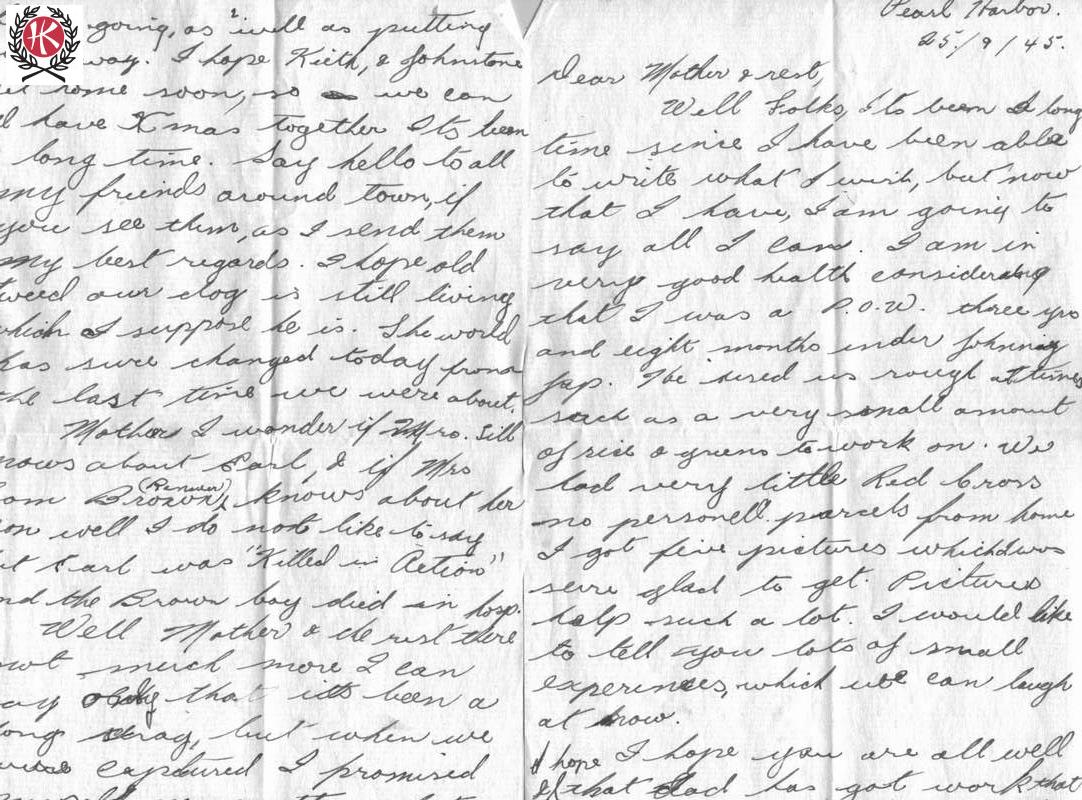 HK
going, as well as putting
way. I hope Kieth, & Johnstone
home soon, so we can
have Xmas together Its been
long time. Say hello to all
my friends around town, if
you see them, as I send them
my best regards. I hope old
tweed our dog is still living
which I suppose he is. The world
has sure changed today from
the last time we were about.
Mother I wonder if Mrs. Sill
nows about Earl, & if Mrs
Brown, knows about her
on well I do not like to say
ut Earl was "Killed in Action"
nd the Brown boy died in hosp.
Well Mother & the rest there
not much more I can
ay only that its been a
long drag, but when we
were captured I promised
Pearl Harbor.
25/9/45.
Dear Mother & rest,
Well Folks, Its been a long
time since I have been able
to write what I wish, but now
that I have, I am going to
say all I can. I am in
very good health considering
that I was a P.O.W. three yrs
and eight months under Johnnay
Jap. He used us rough at times
such as a very small amount
of rice & greens to work on. We
had very little Red Cross
no personell parcels from home
I got five pictures which was
sure glad to get. Pictures
help such a lot. I would like
to tell you lots of small
experinces, which we can laugh
at now.
I hope I hope you are all well
& that Dad has got work that